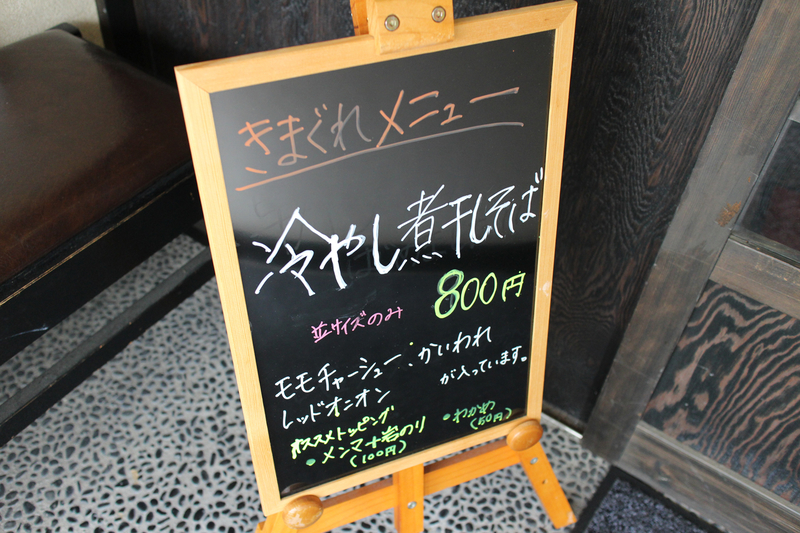 きまぐれメニュー
冷やし煮干しそば
800円
並サイズのみ
モモチャーシュー、かいわれ
レッドオニオン
が入っています。
オススメトッピング
・メンマ+岩のり
(100円)
・わかめ
(50円)